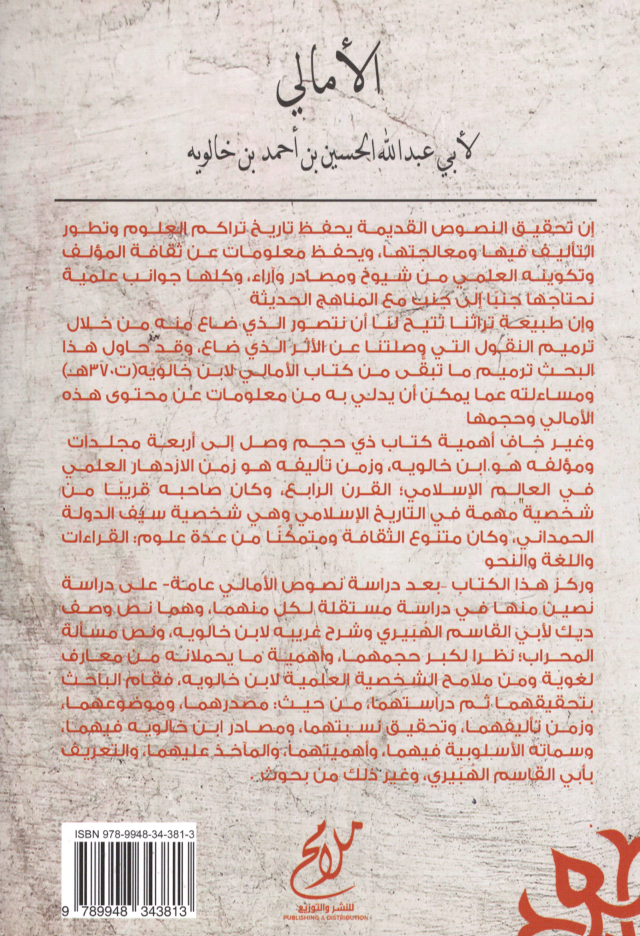 الأمالي
لأبي عبدالله الحسين بن أحمد بن خالويه
إن تحقيق النصوص القديمة يحفظ تاريخ تراكم العلوم وتطور
التأليف فيها ومعالجتها، ويحفظ معلومات عن ثقافة المؤلف
وتكوينه العلمي من شيوخ ومصادر وآراء، وكلها جوانب علمية
نحتاجها جنبًا إلى جنب مع المناهج الحديثة
وإن طبيعة تراثنا تتيح لنا أن نتصور الذي ضاع منه من خلال
ترميم النقول التي وصلتنا عن الأثر الذي ضاع، وقد حاول هذا
البحث ترميم ما تبقى من كتاب الأمالي لابن خالويه(ت٣٧٠هـ)
ومساءلته عما يمكن أن يدلي به من معلومات عن محتوى هذه
الأمالي وحجمها
وغير خافٍ أهمية كتاب ذي حجم وصل إلى أربعة مجلدات
ومؤلفه هو ابن خالويه، وزمن تأليفه هو زمن الازدهار العلمي
في العالم الإسلامي؛ القرن الرابع، وكان صاحبه قريبًا من
شخصية مهمة في التاريخ الإسلامي وهي شخصية سيف الدولة
الحمداني، وكان متنوع الثقافة ومتمكنًا من عدة علوم: القراءات
واللغة والنحو
وركز هذا الكتاب -بعد دراسة نصوص الأمالي عامة- على دراسة
نصين منها في دراسة مستقلة لكل منهما، وهما نص وصف
ديك لأبي القاسم الهُبَيري وشرح غريبه لابن خالويه، ونص مسألة
المحراب؛ نظرا لكبر حجمهما، وأهمية ما يحملانه من معارف
لغوية ومن ملامح الشخصية العلمية لابن خالويه، فقام الباحث
بتحقيقهما ثم دراستهما؛ من حيث: مصدرهما، وموضوعهما،
وزمن تأليفهما، وتحقيق نسبتهما، ومصادر ابن خالويه فيهما،
وسماته الأسلوبية فيهما، وأهميتهما، والمآخذ عليهما، والتعريف
بأبي القاسم الهُبَيري، وغير ذلك من بحوث.
ISBN 978-9948-34-381-3
9 789948 343813
ملامح
للنشر والتوزيع
PUBLISHING & DISTRIBUTION